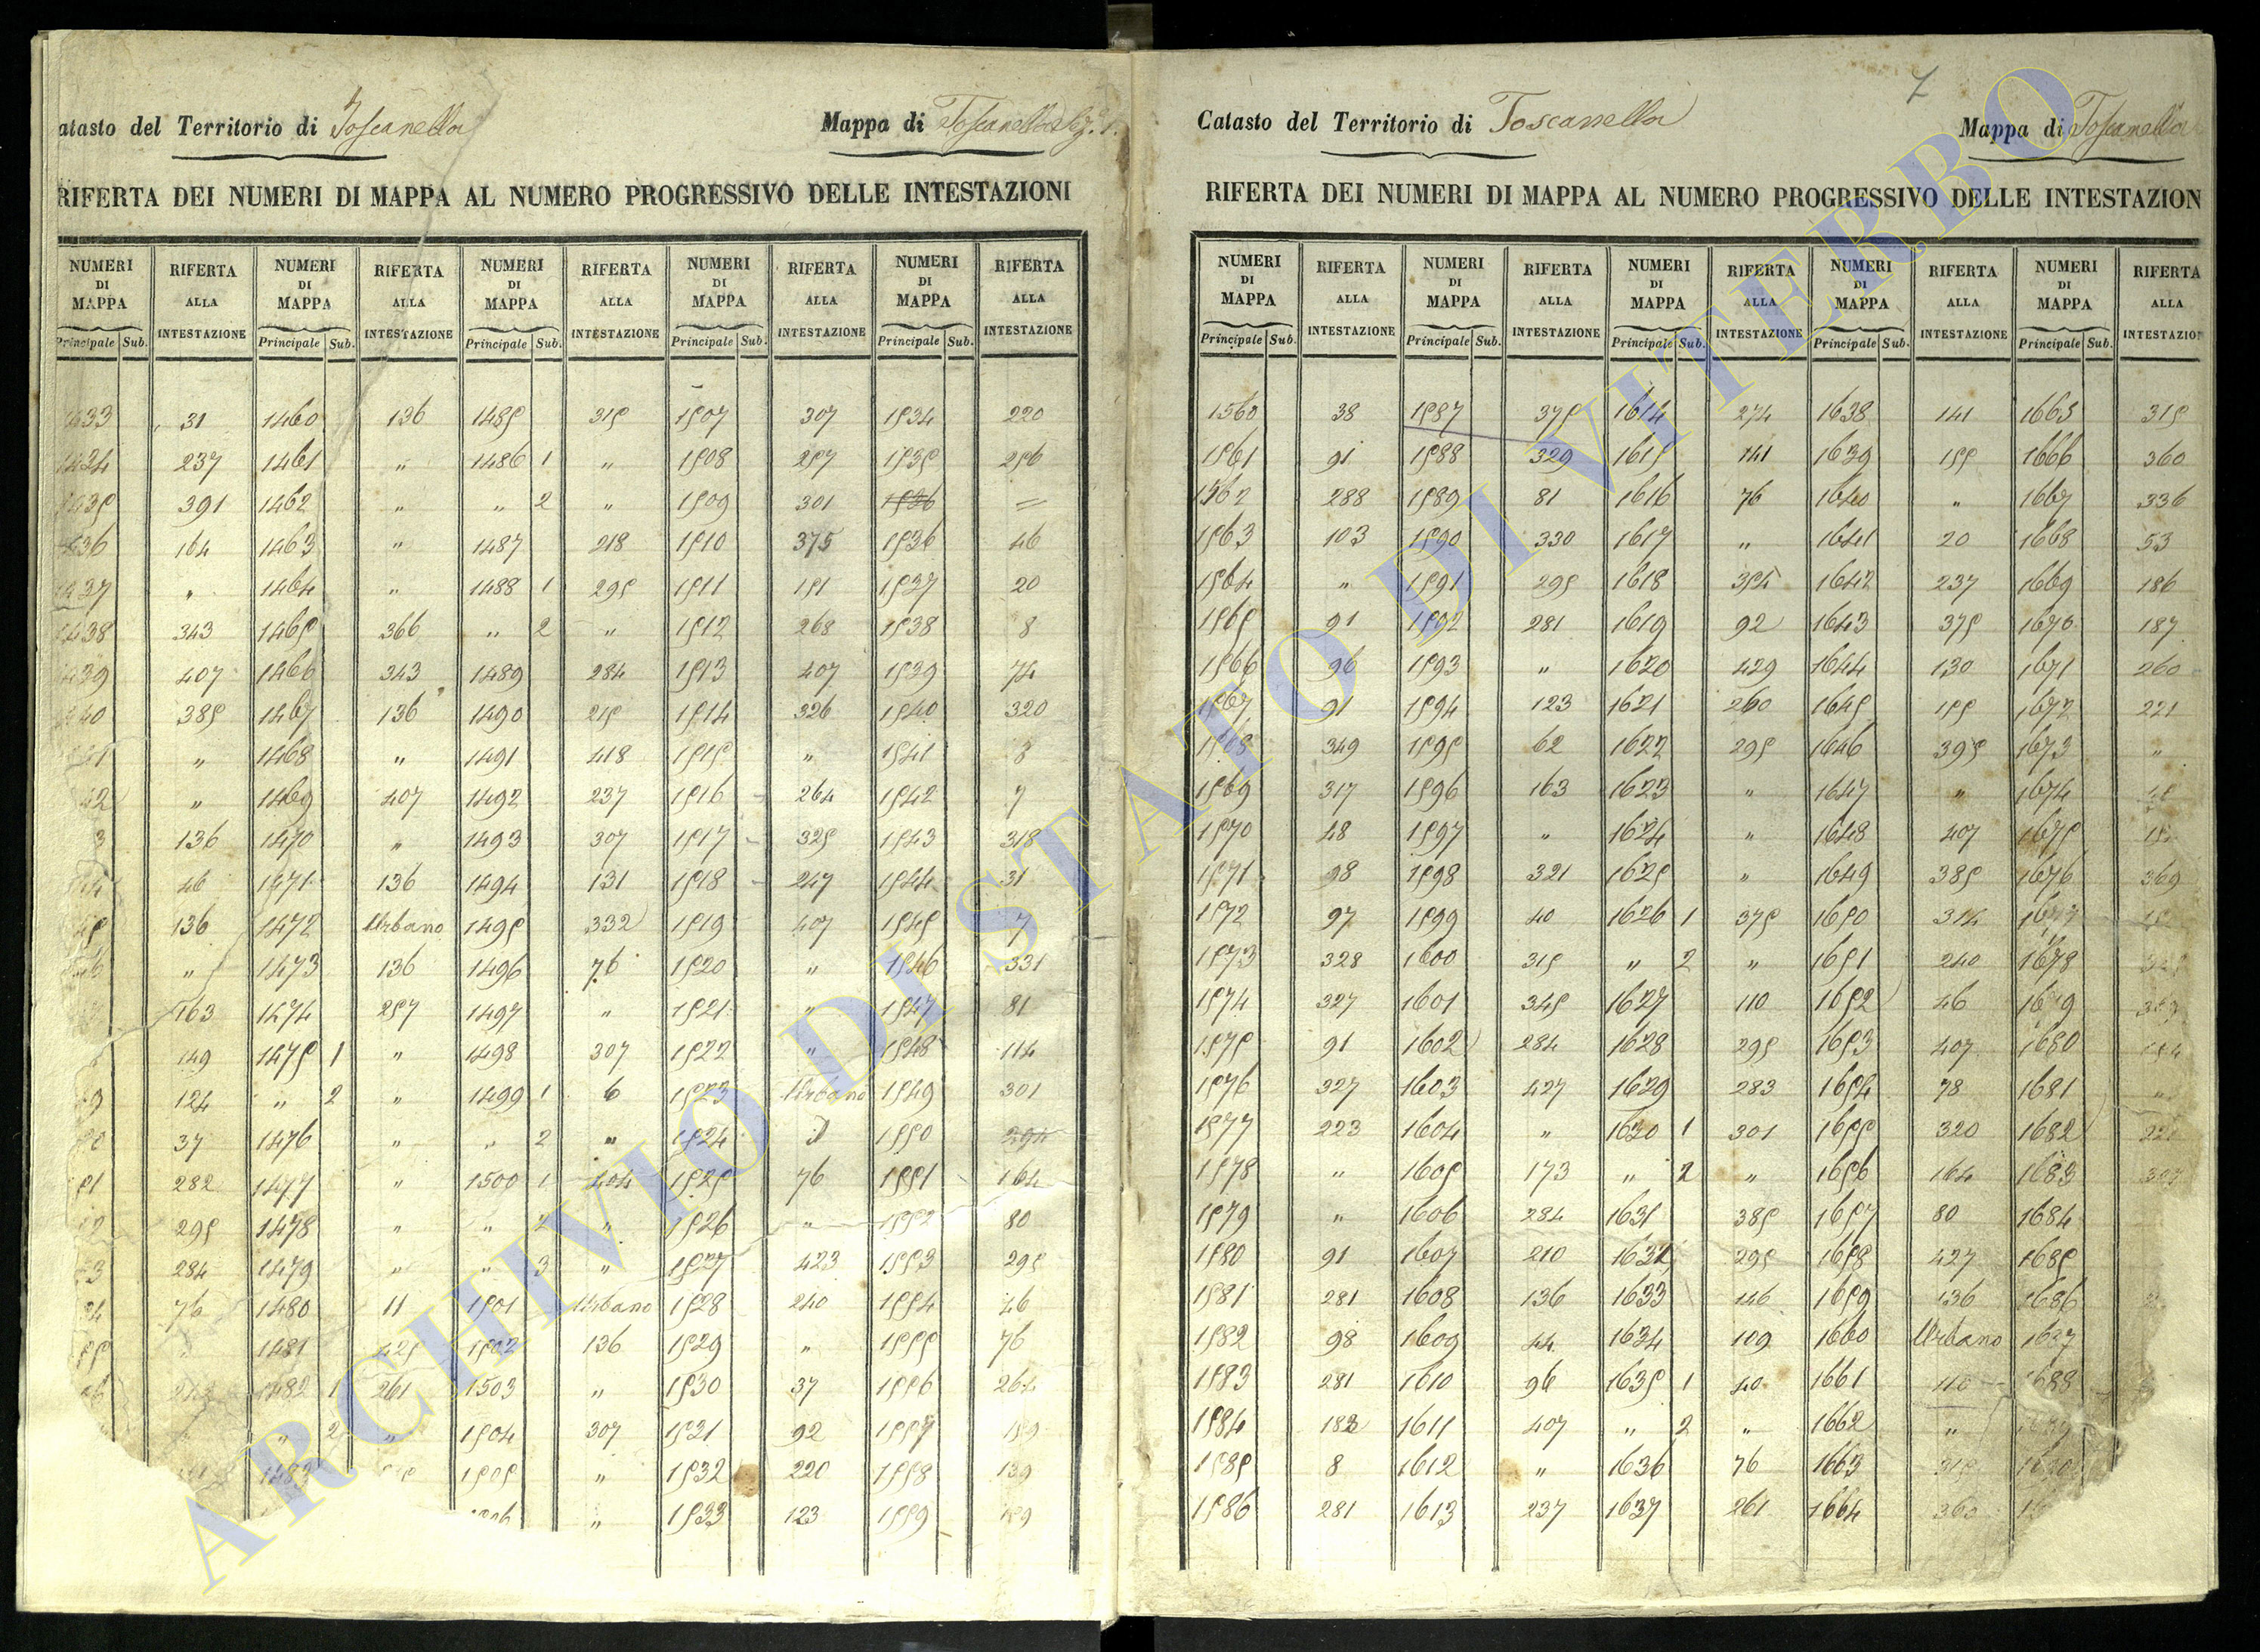 atasto del Territorio di Toscanella
Mappa di Toscanella Sez. 1.
RIFERTA DEI NUMERI DI MAPPA AL NUMERO PROGRESSIVO DELLE INTESTAZIONI
NUMERI DI MAPPA RIFERTA ALLA INTESTAZIONE NUMERI DI MAPPA RIFERTA ALLA INTESTAZIONE NUMERI DI MAPPA RIFERTA ALLA INTESTAZIONE NUMERI DI MAPPA RIFERTA ALLA INTESTAZIONE NUMERI DI MAPPA RIFERTA ALLA INTESTAZIONE
Principale Sub. Principale Sub. Principale Sub. Principale Sub. Principale Sub.
33 31 1460 136 1485 315 1507 307 1534 220
237 1461 " 1486 1 " 1508 257 1535 256
35 391 1462 " " 2 " 1509 301 1536 =
36 164 1463 " 1487 218 1510 375 1536 46
37 " 1464 " 1488 1 295 1511 151 1537 20
1438 343 1465 366 " 2 " 1512 268 1538 8
39 407 1466 343 1489 284 1513 407 1539 74
40 385 1467 136 1490 215 1514 326 1540 320
" 1468 " 1491 418 1515 " 1541 3
42 " 1469 407 1492 237 1516 264 1542 7
3 136 1470 " 1493 307 1517 325 1543 318
46 1471 136 1494 131 1518 247 1544 31
45 136 1472 Urbano 1495 332 1519 407 1545 7
46 " 1473 136 1496 76 1520 " 1546 331
163 1474 257 1497 " 1521 " 1547 81
149 1475 1 " 1498 307 1522 " 1548 114
9 124 " 2 " 1499 1 6 1523 Urbano 1549 301
37 1476 " " 2 " 1524 d 1550 294
51 282 1477 " 1500 1 404 1525 76 1551 164
295 1478 " " 2 " 1526 " 1552 80
3 284 1479 " " 3 " 1527 423 1553 295
76 1480 11 1501 Urbano 1528 240 1554 46
55 " 1481 425 1502 136 1529 " 1555 76
1482 1 261 1503 " 1530 37 1556 264
" 2 " 1504 307 1531 92 1557 159
1483 1505 " 1532 220 1558 139
" 1533 123 1559 159
7
Catasto del Territorio di Toscanella
Mappa di Toscanella
RIFERTA DEI NUMERI DI MAPPA AL NUMERO PROGRESSIVO DELLE INTESTAZION
NUMERI DI MAPPA RIFERTA ALLA INTESTAZIONE NUMERI DI MAPPA RIFERTA ALLA INTESTAZIONE NUMERI DI MAPPA RIFERTA ALLA INTESTAZIONE NUMERI DI MAPPA RIFERTA ALLA INTESTAZIONE NUMERI DI MAPPA RIFERTA ALLA INTESTAZION
Principale Sub. Principale Sub. Principale Sub. Principale Sub. Principale Sub.
1560 38 1587 375 1614 274 1638 141 1665 315
1561 91 1588 329 1615 141 1639 155 1666 360
1562 288 1589 81 1616 76 1640 " 1667 336
1563 103 1590 330 1617 " 1641 20 1668 53
1564 " 1591 295 1618 354 1642 237 1669 186
1565 91 1592 281 1619 92 1643 375 1670 187
1566 96 1593 " 1620 429 1644 130 1671 260
1567 91 1594 123 1621 260 1645 155 1672 221
1568 349 1595 62 1622 295 1646 395 1673 "
1569 317 1596 163 1623 " 1647 " 1674
1570 48 1597 " 1624 " 1648 407 1675
1571 98 1598 321 1625 " 1649 385 1676 369
1572 97 1599 40 1626 1 375 1650 314 1677
1573 328 1600 315 " 2 " 1651 240 1678
1574 327 1601 345 1627 110 1652 46 1679
1575 91 1602 284 1628 295 1653 407 1680
1576 327 1603 427 1629 283 1654 78 1681 "
1577 223 1604 " 1630 1 301 1655 320 1682
1578 " 1605 173 " 2 " 1656 164 1683
1579 " 1606 284 1631 385 1657 80 1684
1580 91 1607 210 1632 295 1658 427 1685
1581 281 1608 136 1633 146 1659 136 1686
1582 98 1609 44 1634 109 1660 Urbano 1687
1583 281 1610 96 1635 1 40 1661 110 1688
1584 183 1611 407 " 2 " 1662 "
1585 8 1612 " 1636 76 1663 315 1690
1586 281 1613 237 1637 261 1664 360
ARCHIVIO DI STATO DI VITERBO